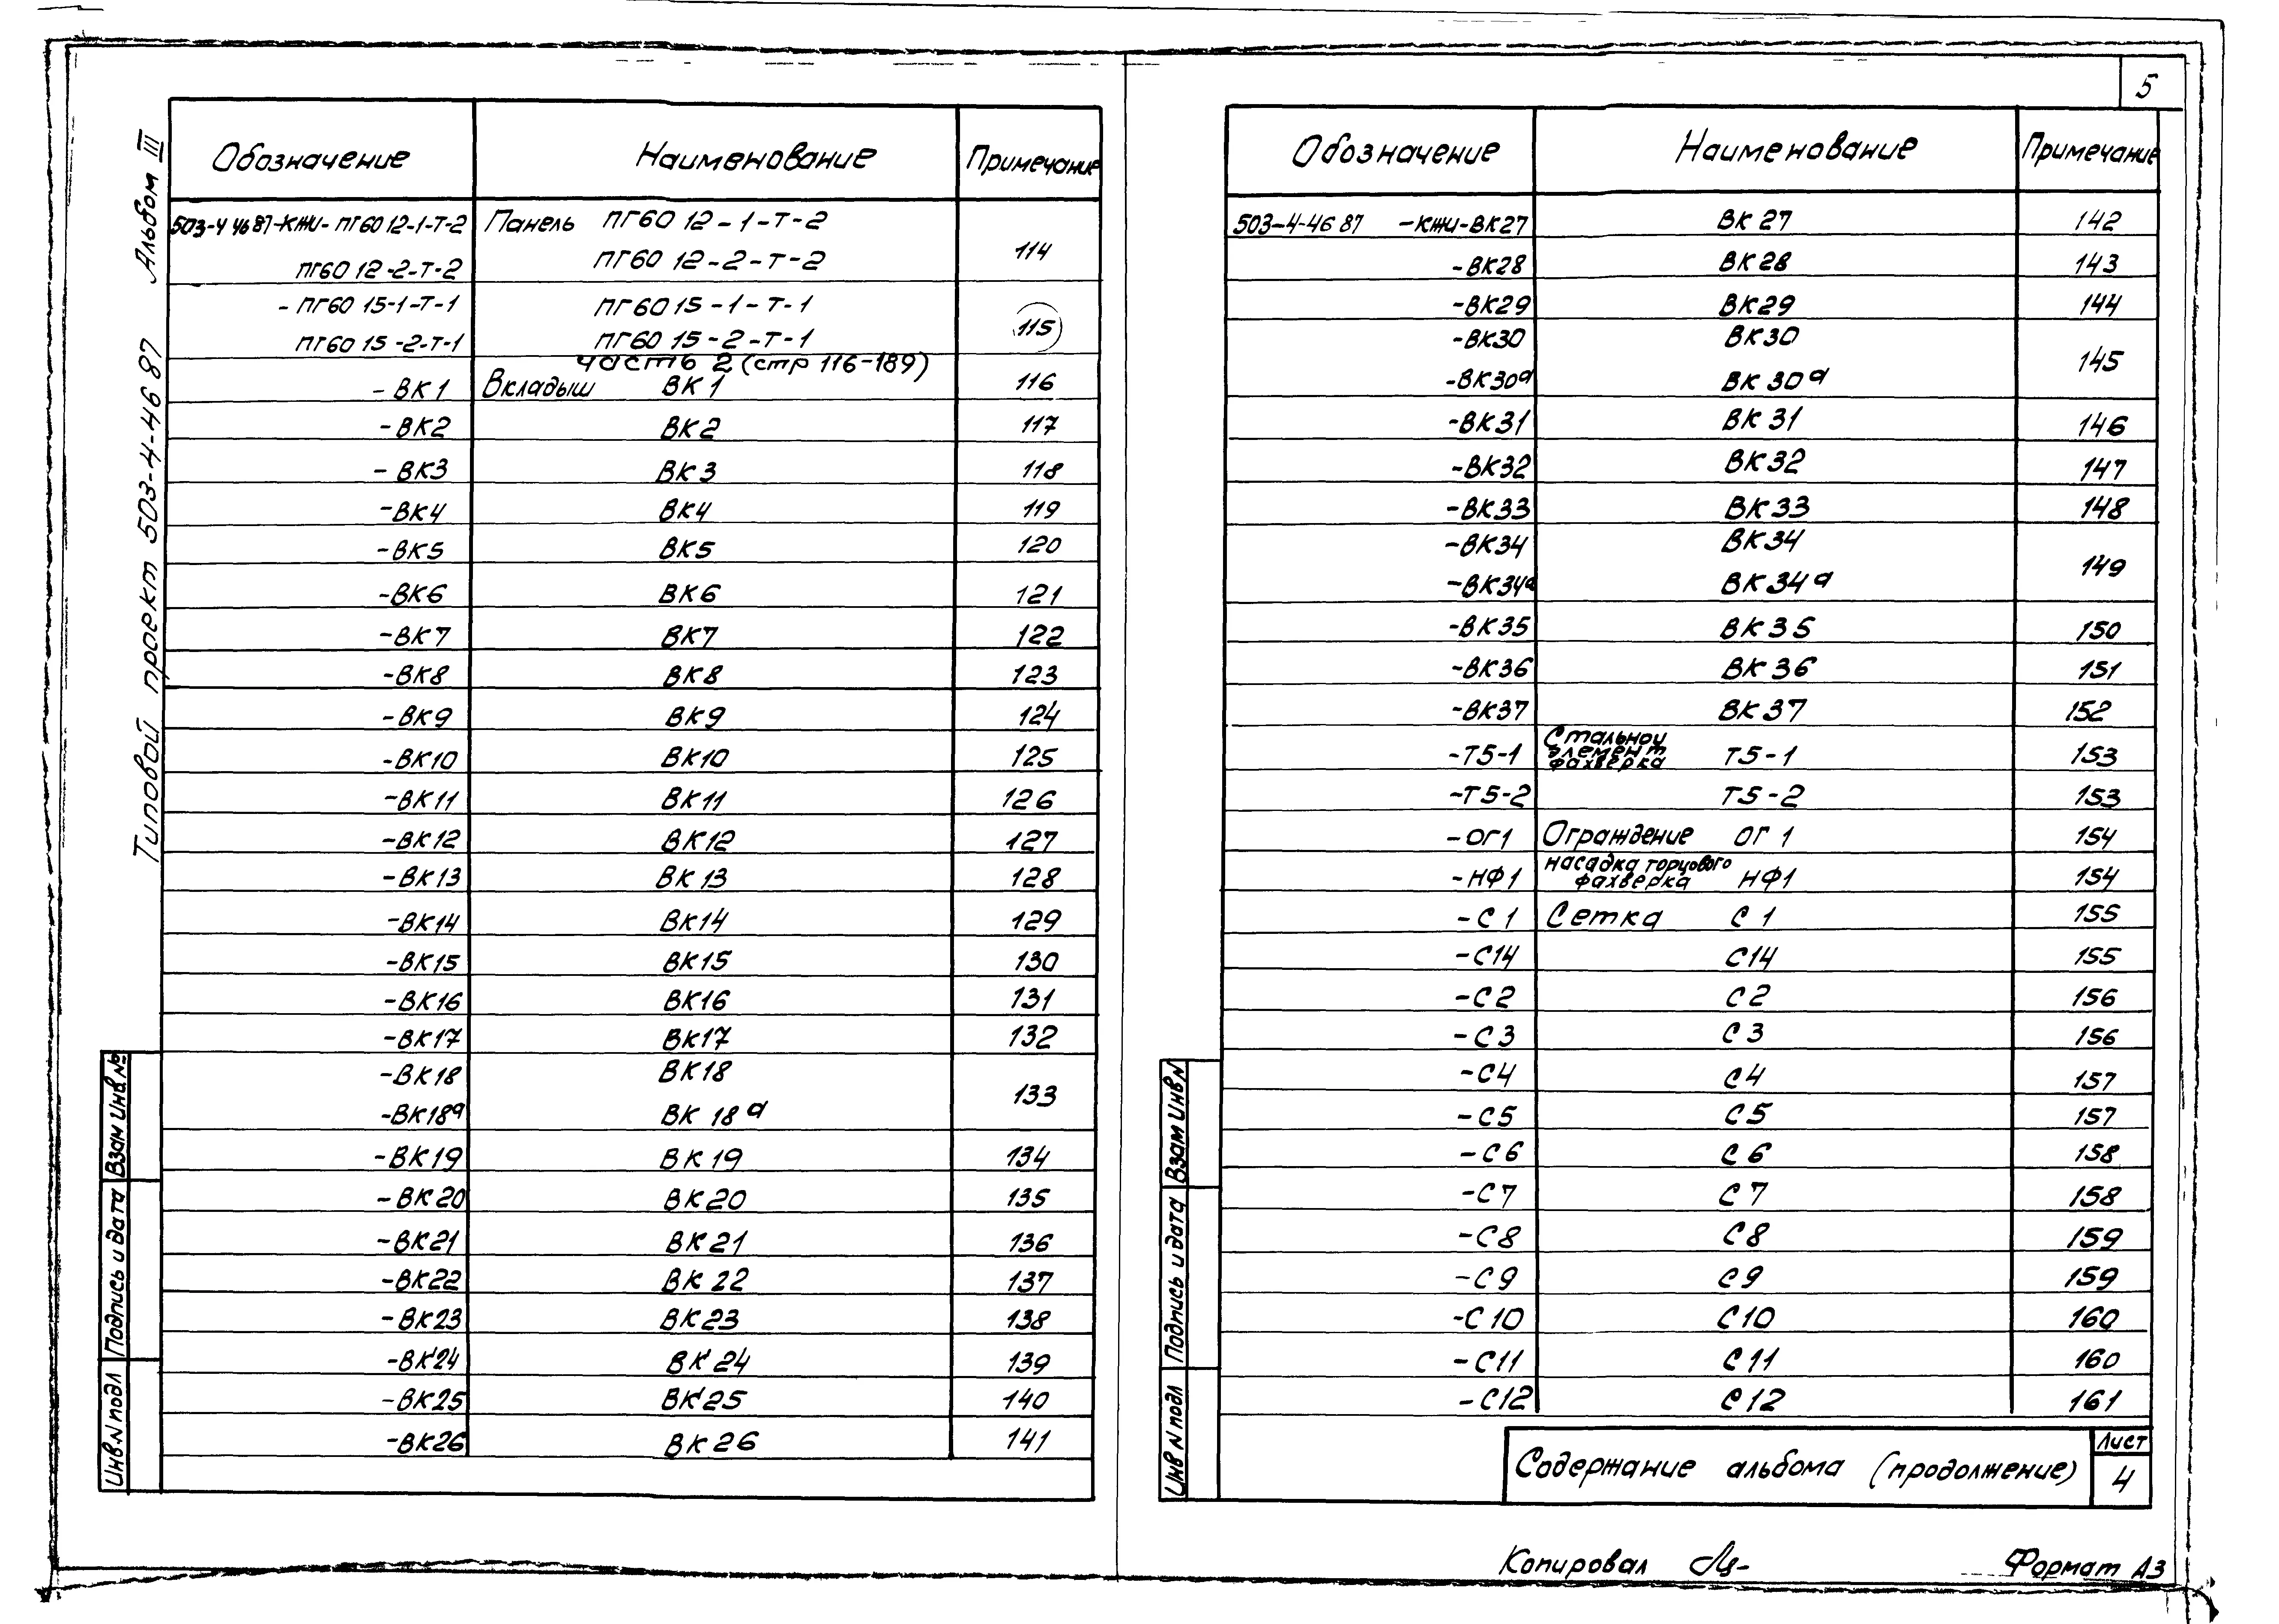 5
Типовой проект 503-4-46 87 Альбом III
Обозначение Наименование Примечание
503-4 46 87-КЖИ- ПГ60 12-1-Т-2 Панель ПГ60 12-1-Т-2
ПГ60 12-2-Т-2 ПГ60 12-2-Т-2 114
- ПГ60 15-1-Т-1 ПГ60 15-1-Т-1
ПГ60 15-2-Т-1 ПГ60 15-2-Т-1 115
часть 2 (стр 116-189)
- ВК1 Вкладыш ВК1 116
-ВК2 ВК2 117
- ВК3 ВК3 118
-ВК4 ВК4 119
-ВК5 ВК5 120
-ВК6 ВК6 121
-ВК7 ВК7 122
-ВК8 ВК8 123
-ВК9 ВК9 124
-ВК10 ВК10 125
-ВК11 ВК11 126
-ВК12 ВК12 127
-ВК13 ВК13 128
-ВК14 ВК14 129
-ВК15 ВК15 130
-ВК16 ВК16 131
-ВК17 ВК17 132
-ВК18 ВК18
-ВК18а ВК 18а 133
-ВК19 ВК19 134
-ВК20 ВК20 135
-ВК21 ВК21 136
-ВК22 ВК22 137
-ВК23 ВК23 138
-ВК24 ВК24 139
-ВК25 ВК25 140
-ВК26 ВК26 141
Взам Инв №
Подпись и дата
Инв.N подл
Обозначение Наименование Примечание
503-4-46 87 -КЖИ-ВК27 ВК27 142
-ВК28 ВК28 143
-ВК29 ВК29 144
-ВК30 ВК30
-ВК30а ВК30а 145
-ВК31 ВК31 146
-ВК32 ВК32 147
-ВК33 ВК33 148
-ВК34 ВК34
-ВК34а ВК34а 149
-ВК35 ВК35 150
-ВК36 ВК36 151
-ВК37 ВК37 152
Стальной
элемент
-Т5-1 фахверка Т5-1 153
-Т5-2 Т5-2 153
-ОГ1 Ограждение ОГ 1 154
насадка торцового
-НФ1 фахверка НФ1 154
-С1 Сетка С1 155
-С14 С14 155
-С2 С2 156
-С3 С3 156
-С4 С4 157
-С5 С5 157
-С6 С6 158
-С7 С7 158
-С8 С8 159
-С9 С9 159
-С10 С10 160
-С11 С11 160
-С12 С12 161
Взам Инв N
Подпись и дата
Инв N подл
Содержание альбома (продолжение)
Лист
4
Копировал Формат А3